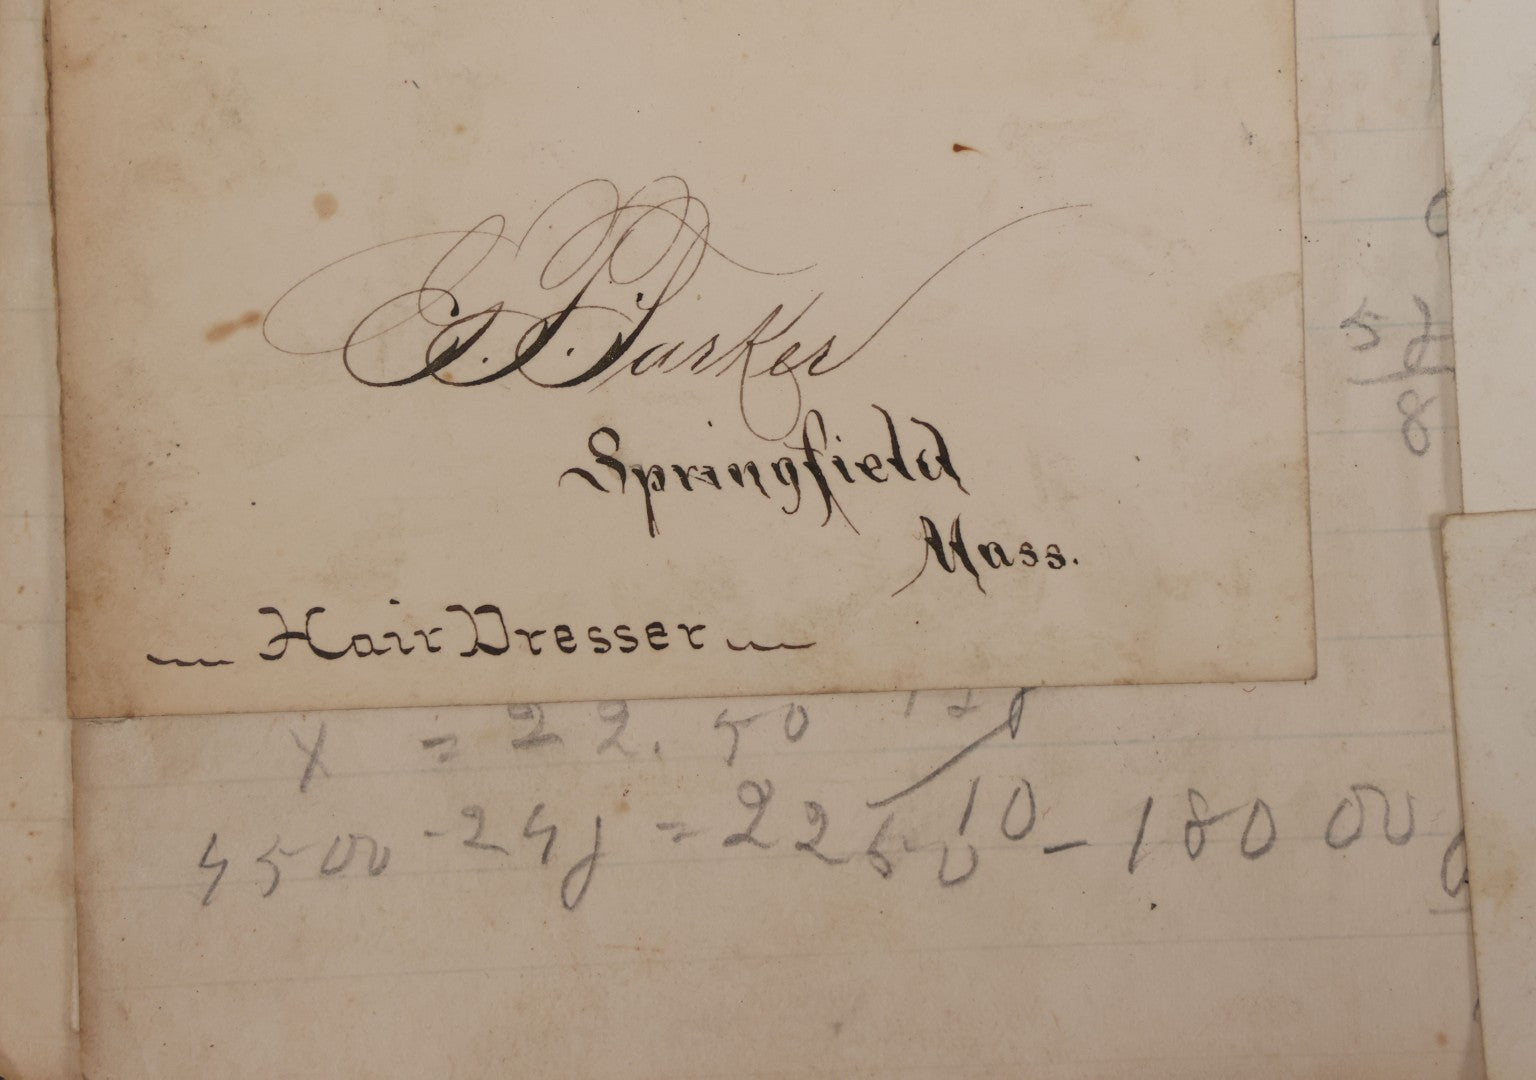 Parker
Springfield
Mass.
Hair Dresser
5 y
8
y = 22.50
4500 - 24y = 2250 10 - 18000